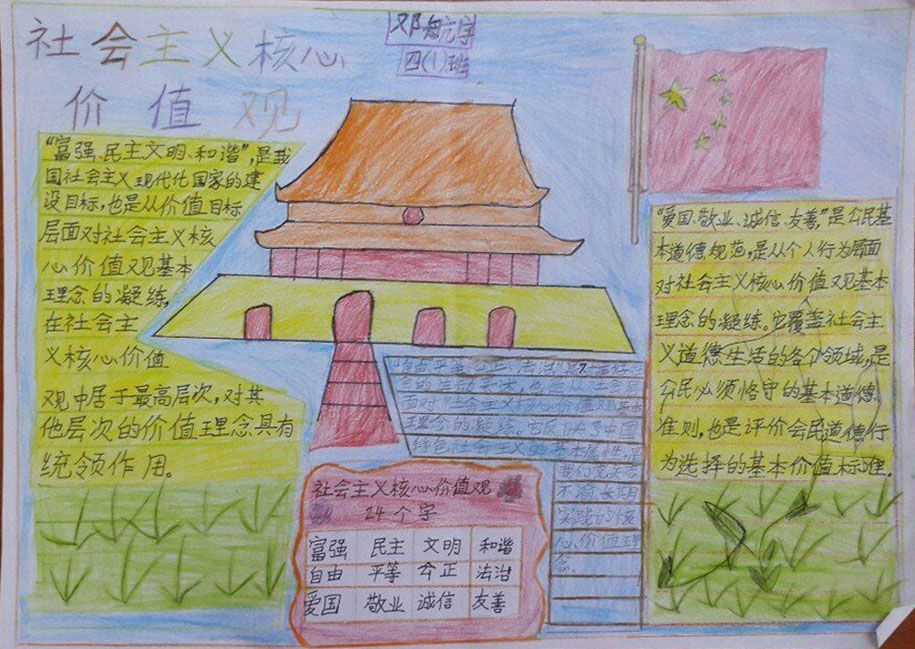 社会主义核心
价值观
邓
四(1)班
"富强、民主文明、和谐",是我
国社会主义现代化国家的建
设目标,也是从价值目标
层面对社会主义核
心价值观基本
理念的凝练,
在社会主
义核心价值
观中居于最高层次,对其
他层次的价值理念具有
统领作用。
平等 法治"是对 社
会的生动表述,也是从社会层
面对"社会主义核心价值观基本
理念的凝练。它反映了中国
特色社会主义的基本属性,是
我们党矢志
不渝,长期
实践的核
心价值理
念.
社会主义核心价值观
24个字
富强 民主 文明 和谐
自由 平等 公正 法治
爱国 敬业 诚信 友善
"爱国、敬业、诚信、友善",是公民基
本道德规范,是从个人行为层面
对社会主义核心价值观基本
理念的凝练。它覆盖社会主
义道德生活的各个领域,是
公民必须恪守的基本道德
准则,也是评价会民道德行
为选择的基本价值标准.